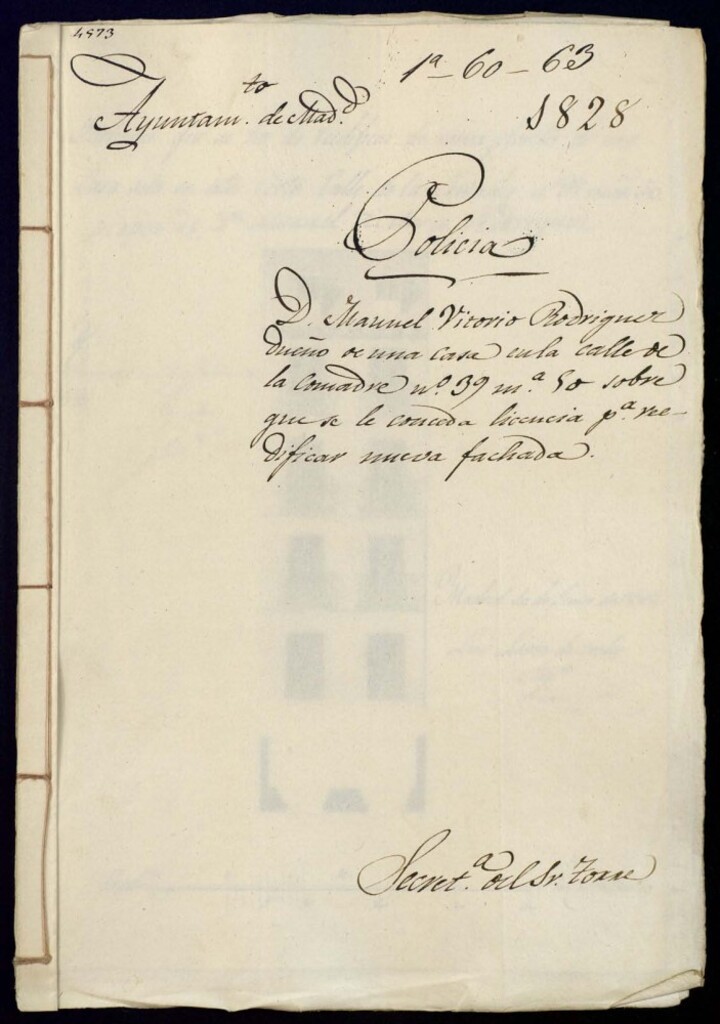 4573
1ª - 60 - 63
Ayuntam.to de Mad.d
1828
Policia
D. Manuel Vitorio Rodriguez
dueño de una casa en la calle de
la comadre nº. 39 m.ª 50 sobre
que se le conceda licencia p.ª ree-
dificar nueva fachada.
Secret.ª del Sr. Torre